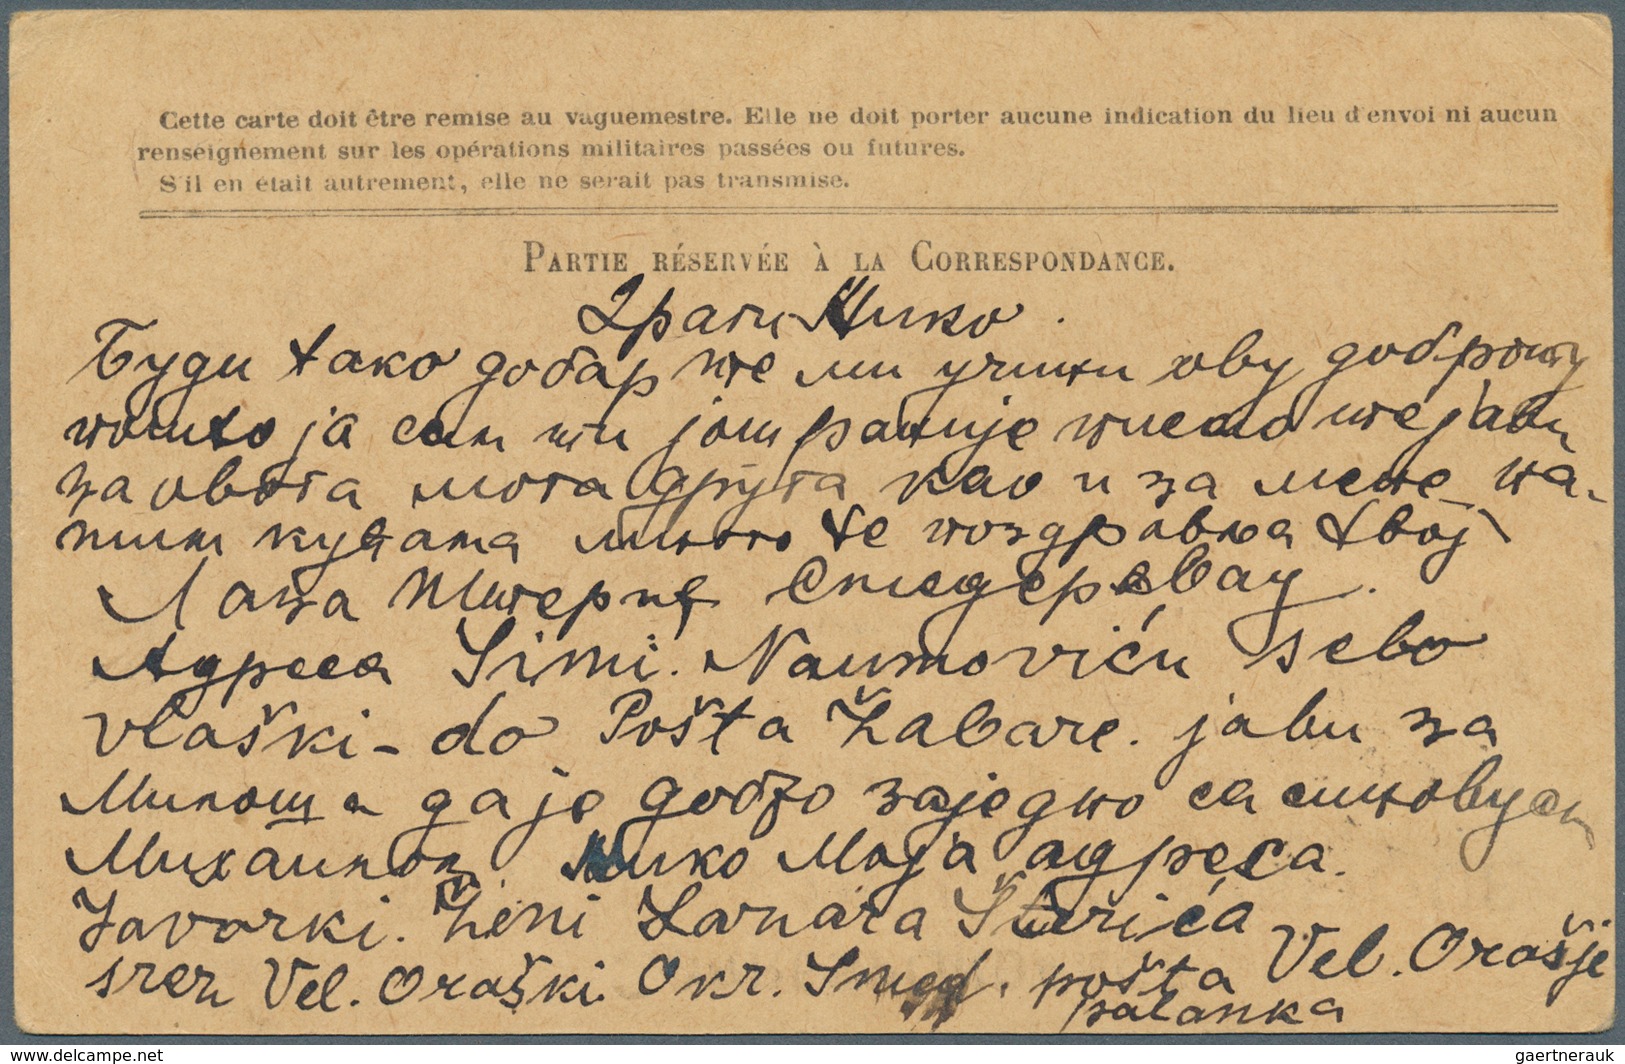 Cette carte doit être remise au vaguemestre. Elle ne doit porter aucune indication du lieu d'envoi ni aucun
renseignement sur les opérations militaires passées ou futures.
S'il en était autrement, elle ne serait pas transmise.
PARTIE RÉSERVÉE À LA CORRESPONDANCE.
Драги Мико.
Буди тако добар те ми учини ову доброту
пошто ја сам ти још раније писао те јави
за овога мога друга као и за мене на
шим кућама много те поздравља твој
Лаза Смедеревац.
Адреса Simi. Naumoviću selo
vlaški-do Pošta Žabare. jabu за
Милоша да је добро заједно са синовцем
Михаилом Мико Моја адреса.
Javorki. Ženi Lazara Šterića
srez Vel. Oraški. Okr. Smed. pošta Vel. Orašje
palanka
delcampe.net
gaertnerauk